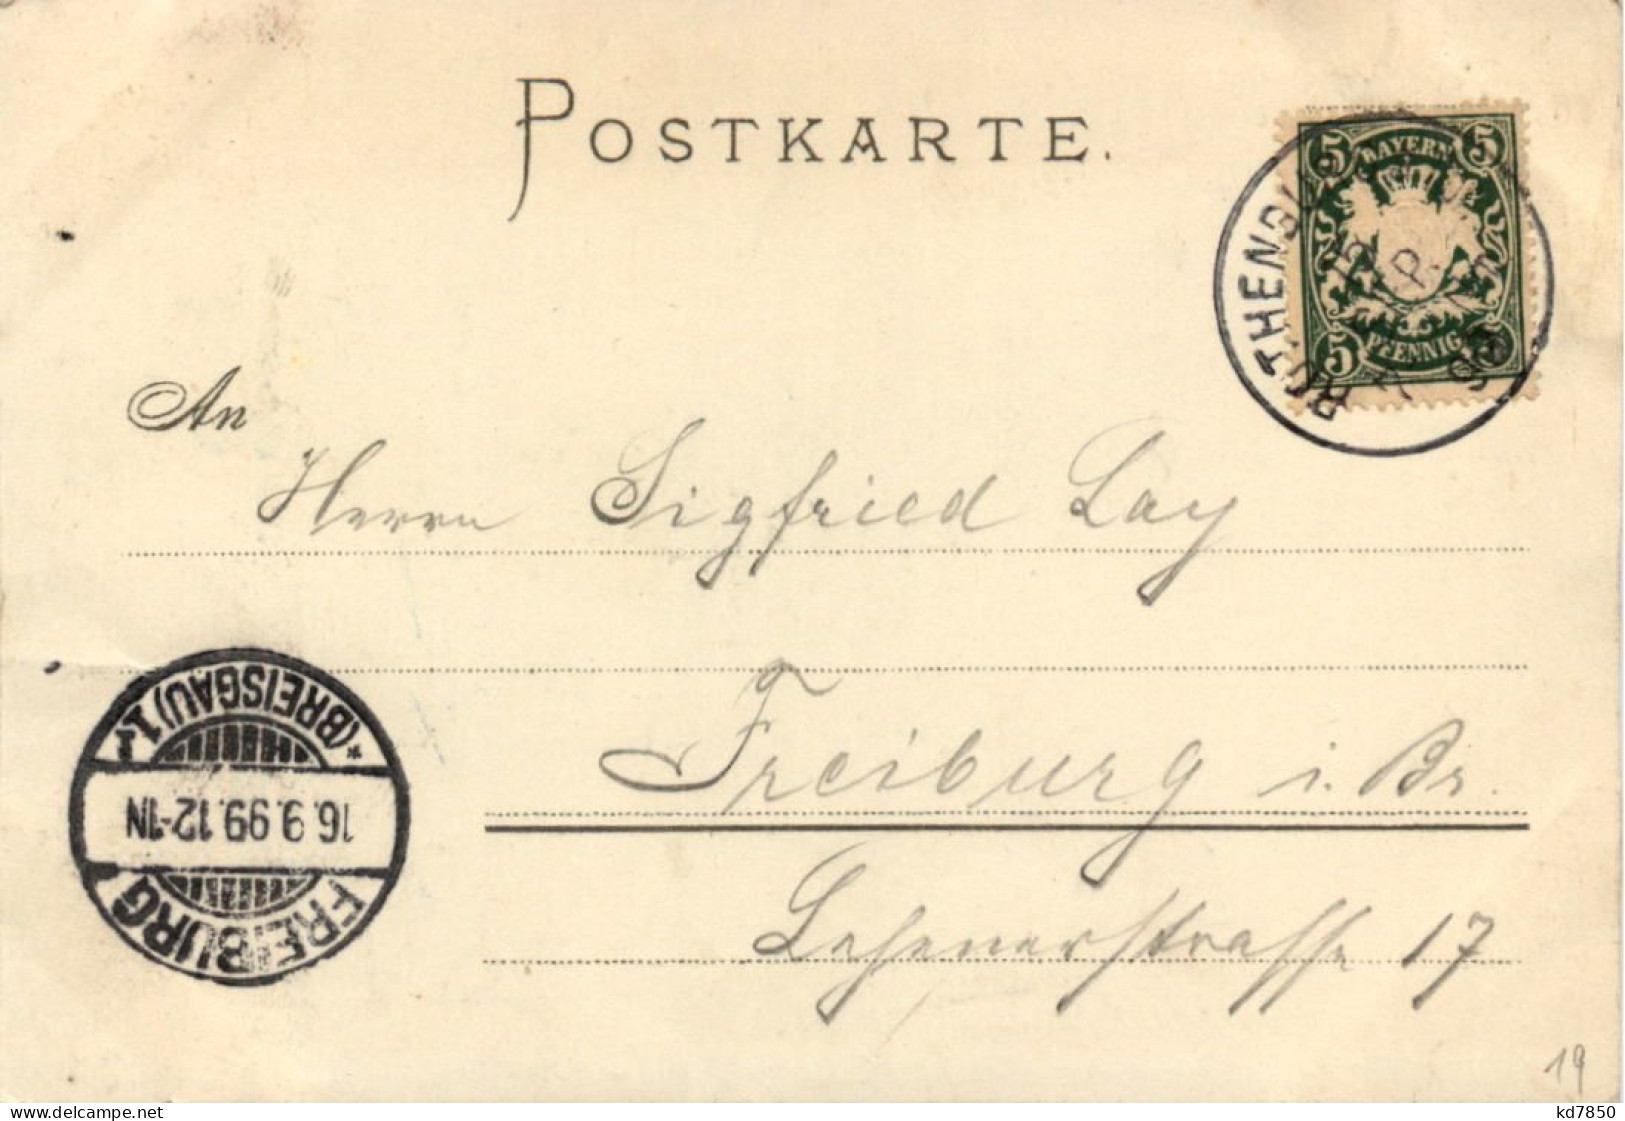 POSTKARTE.
5 BAYERN 5
5 PFENNIG 5
ROTHENBURG
15 SEP.
99
An
Herrn Sigfried Lay
Freiburg i. Br.
Lehenerstrasse 17
FREIBURG
16.9.99.12-1N
* (BREISGAU) 1.
19
www.delcampe.net
kd7850